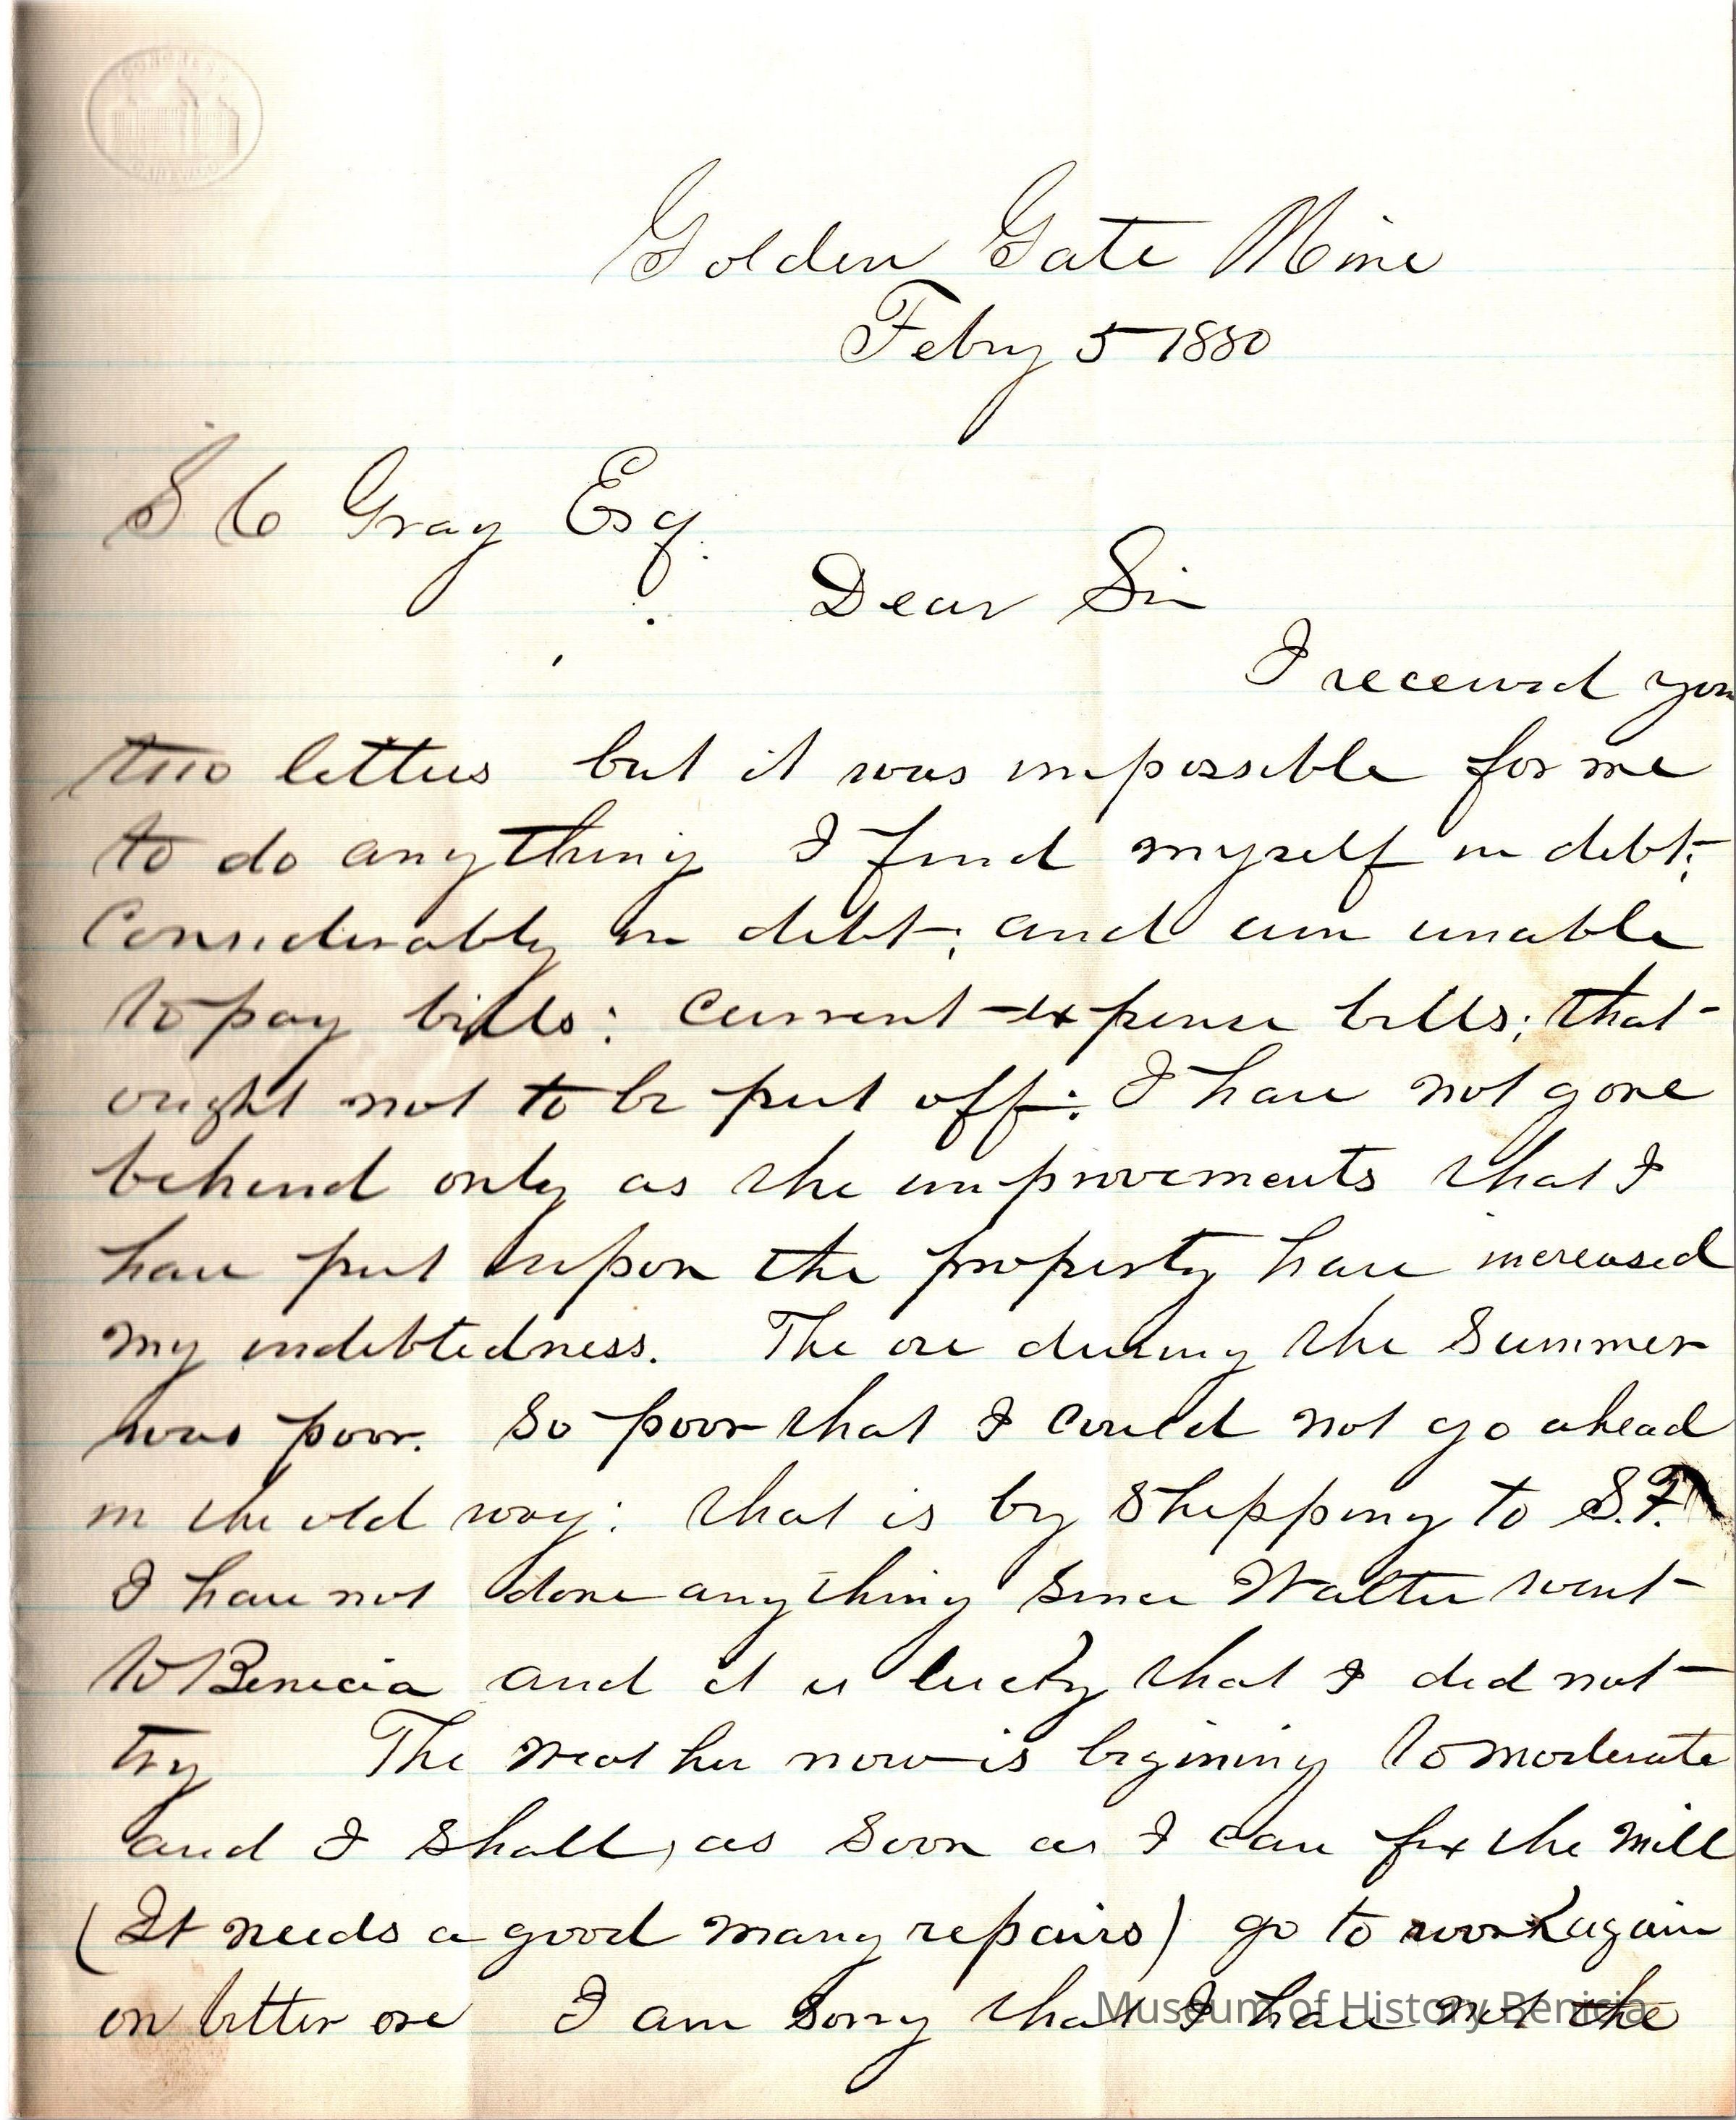 Golden Gate Mine
Febry 5 1880
S C Gray Esq.
Dear Sir
I received you
two letters but it was impossible for me
to do anything I find myself in debt;
Considerably in debt; and am unable
to pay bills: Current expense bills; that
ought not to be put off: I have not gone
behind only as the improvements that I
have put upon the property have increased
my indebtedness. The ore during the Summer
was poor. So poor that I could not go ahead
in the old way: that is by Shipping to S.F.
I have not done anything since Walter went
to Benicia and it is lucky that I did not
try The weather now is begining to moderate
and I shall, as soon as I can fix the mill
(It needs a good many repairs) go to work again
on better ore I am sorry that I have not the
Museum of History Benicia